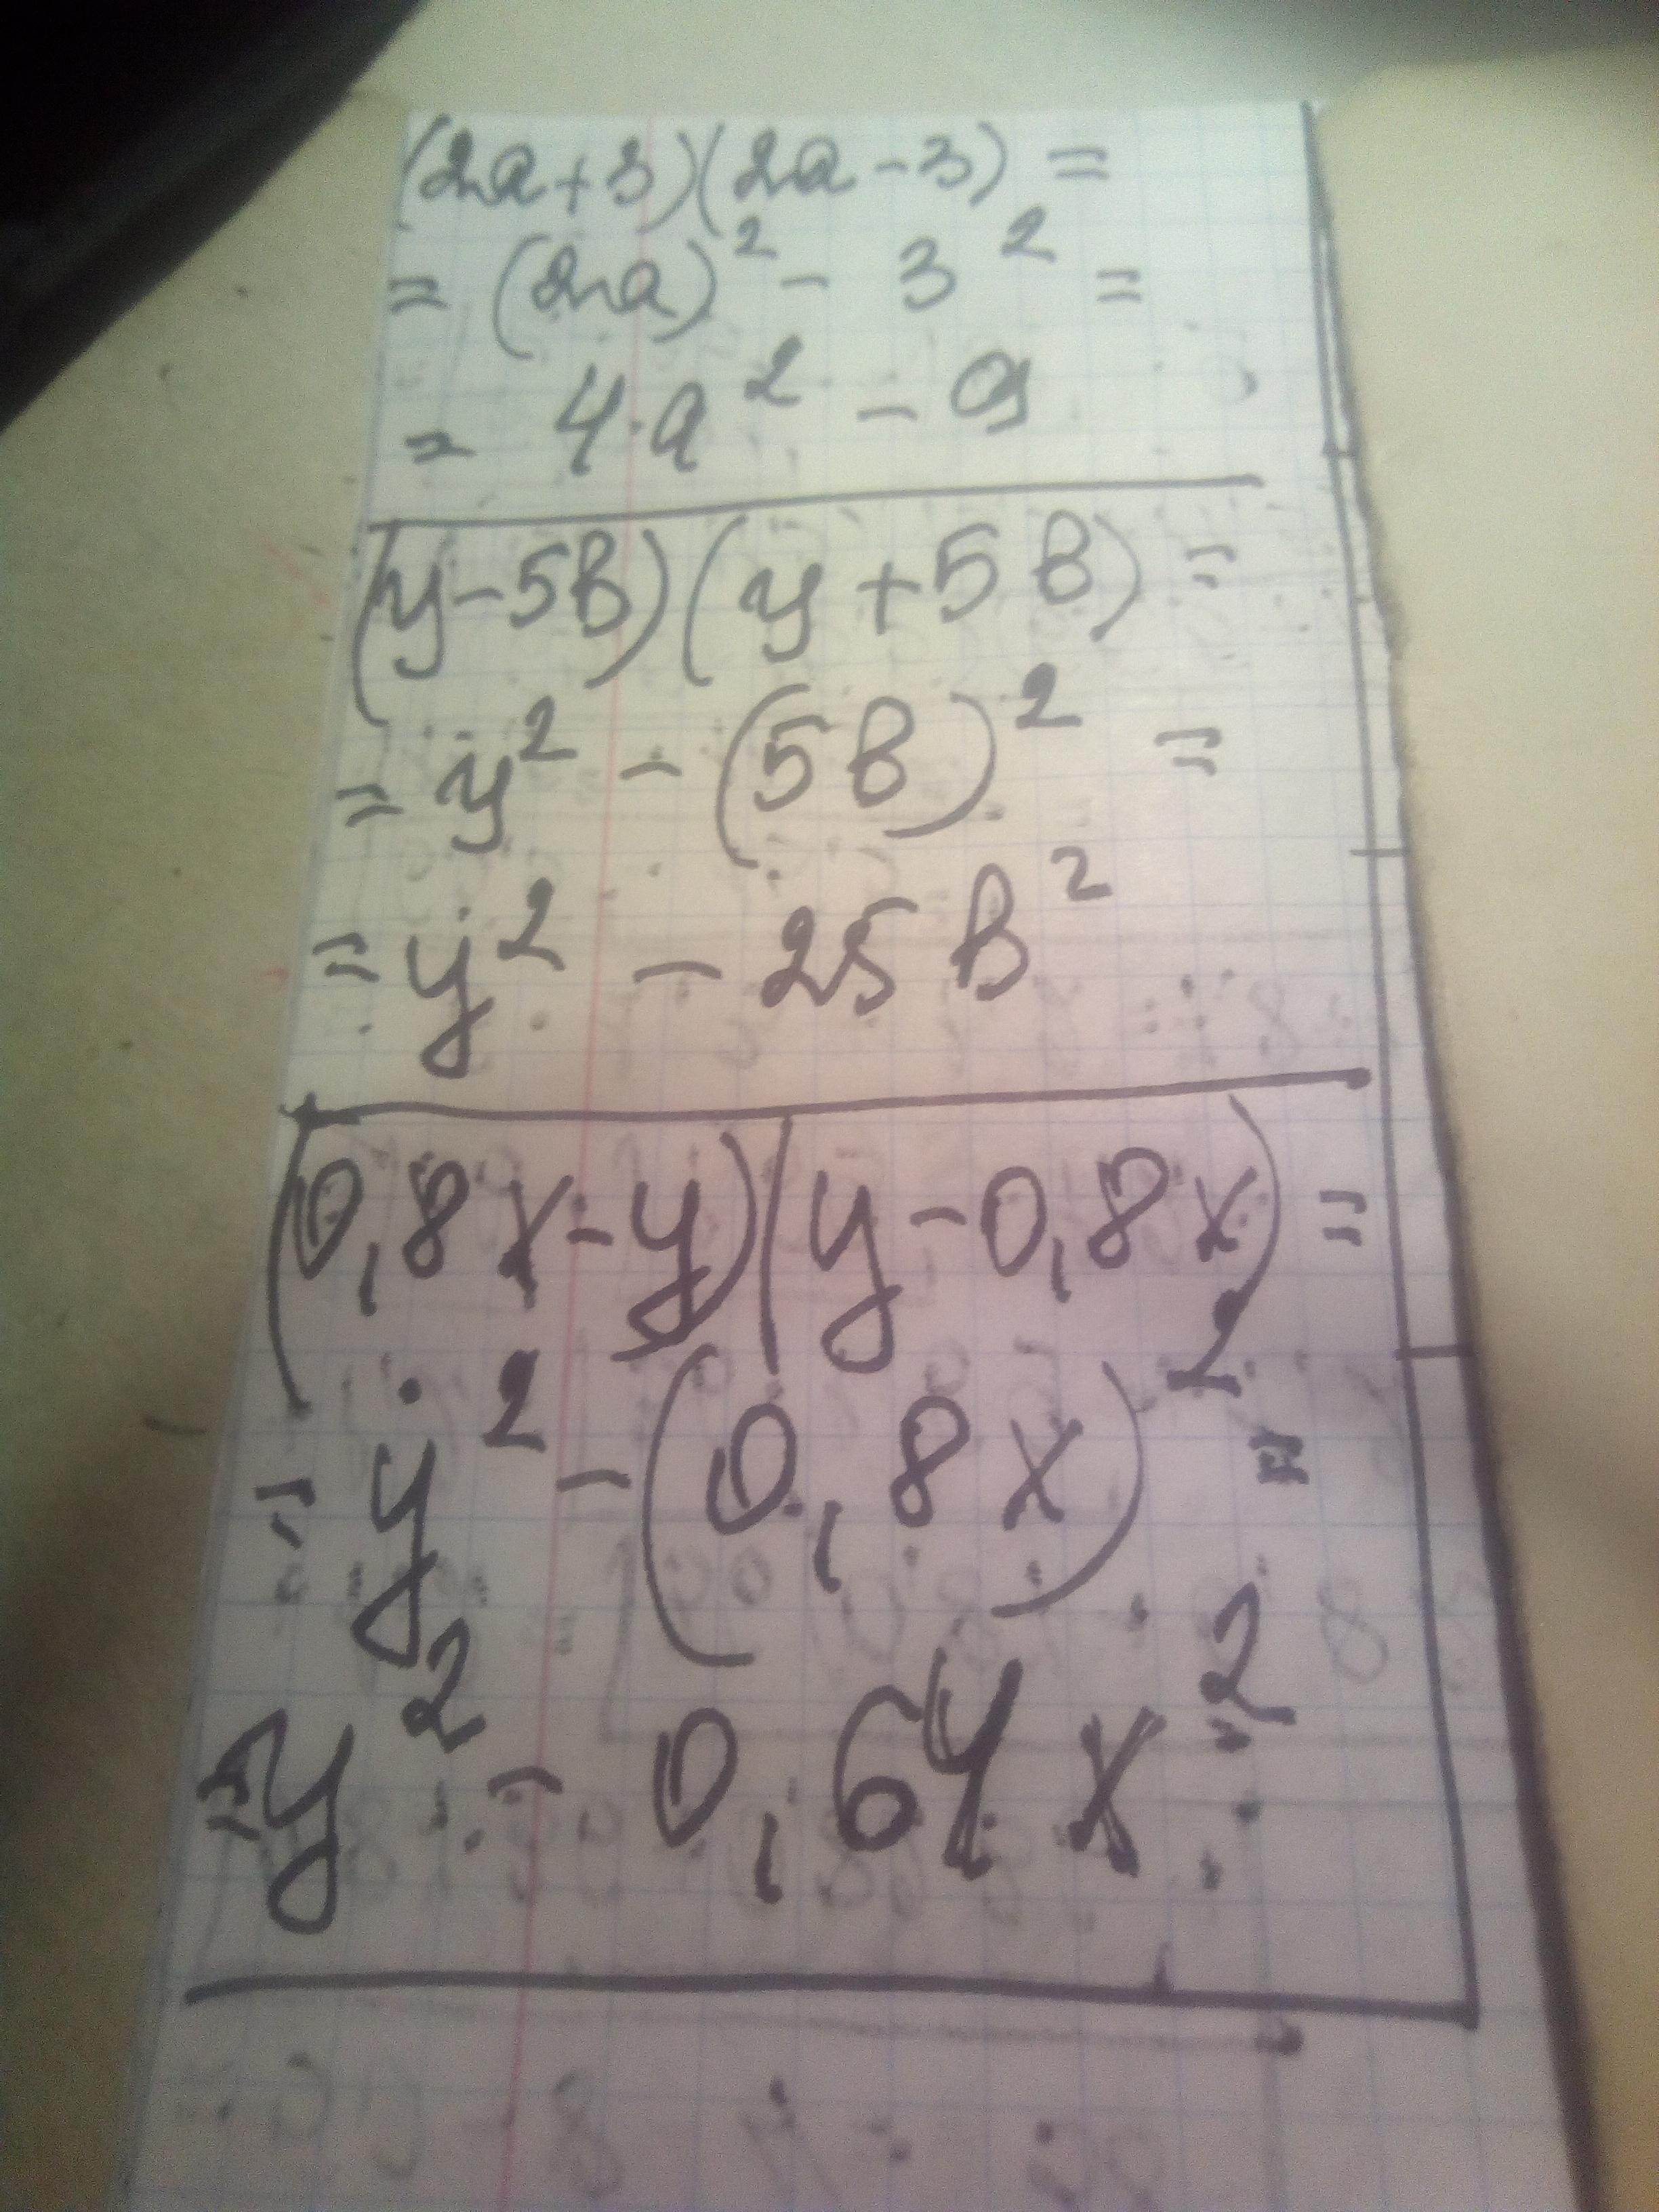 (2a+3)(2a-3)=
=(2a)²-3²=
=4·a²-9
(y-5в)(y+5в)=
=y²-(5в)²=
=y²-25в²
(0,8x-y)(y-0,8x)=
=y²-(0,8x)²=
=y²-0,64x²